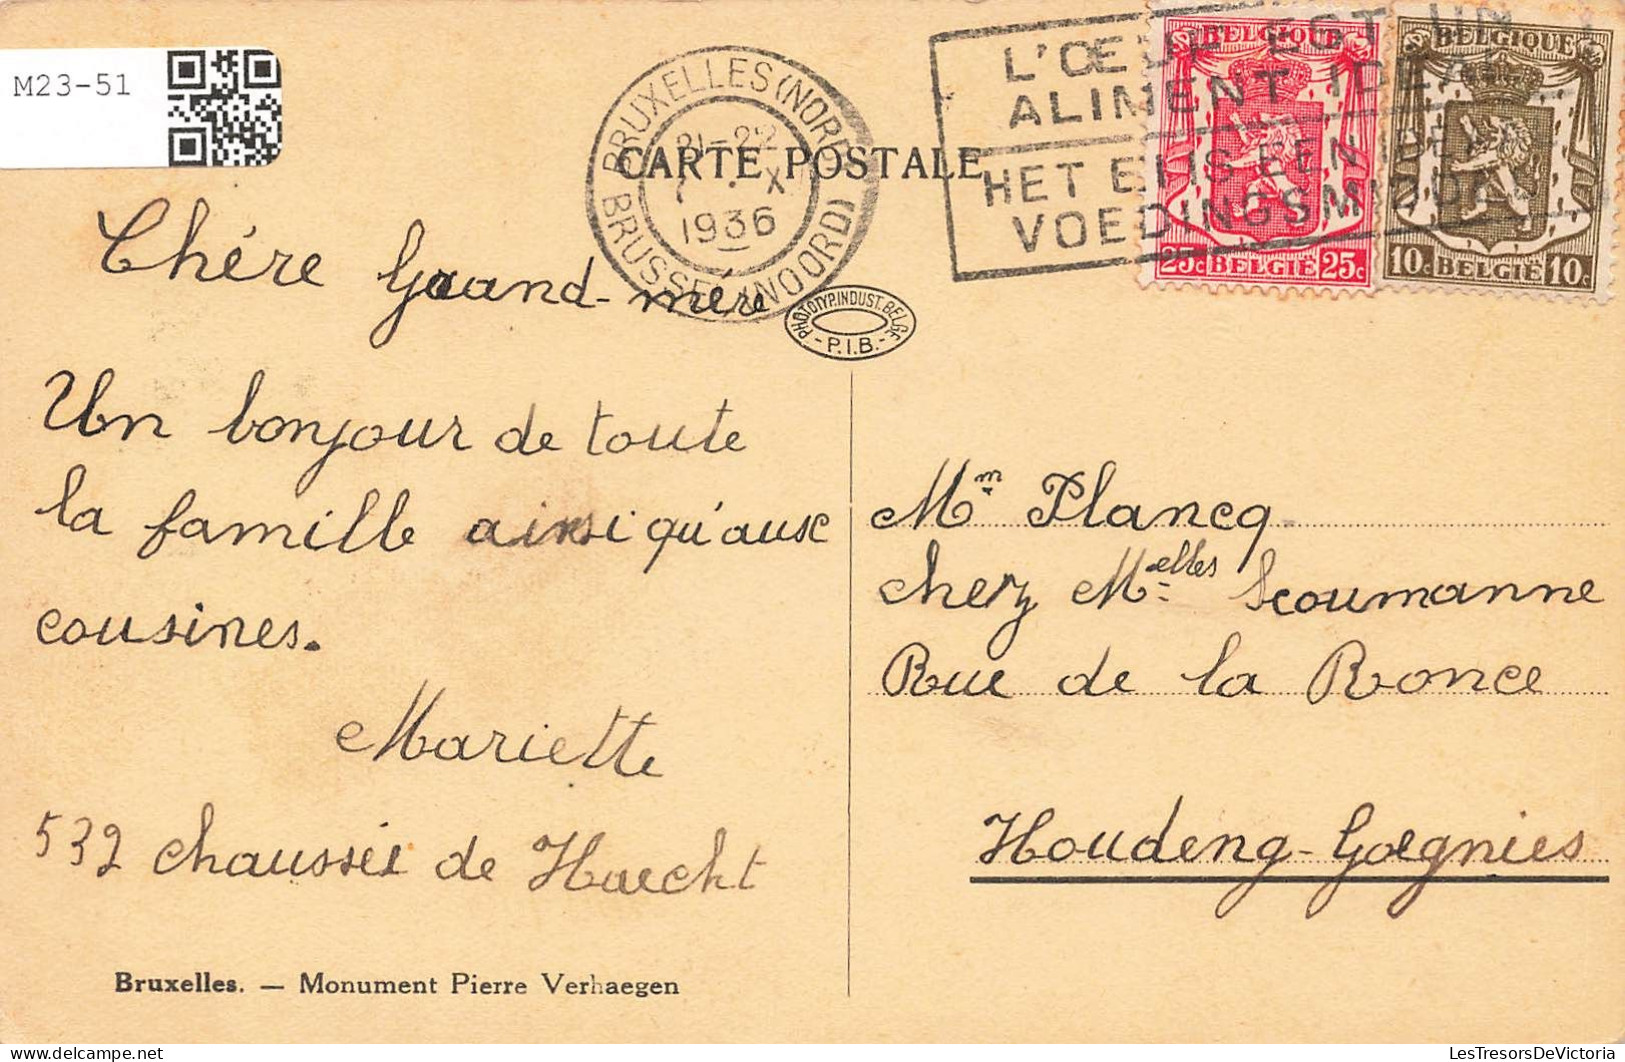 M23-51
BRUXELLES (NORD)
21-22
X
1936
BRUSSEL (NOORD)
L'ŒUF EST UN
ALIMENT IDEAL
HET EI IS EEN IDEAAL
VOEDINGSMIDDEL
BELGIQUE
25c BELGIE 25c
BELGIQUE
10c BELGIE 10c
CARTE POSTALE
PHOTOTYP. INDUST. BELGE
- P.I.B. -
Chére Grand-mére
Un bonjour de toute
la famille ainsi qu'aux
cousines.
Mariette
532 chaussée de Haecht
Mm Plancq
chez Melles Scoumanne
Rue de la Ronce
Houdeng-Goegnies
Bruxelles. — Monument Pierre Verhaegen
LesTresorsDeVictoria
www.delcampe.net